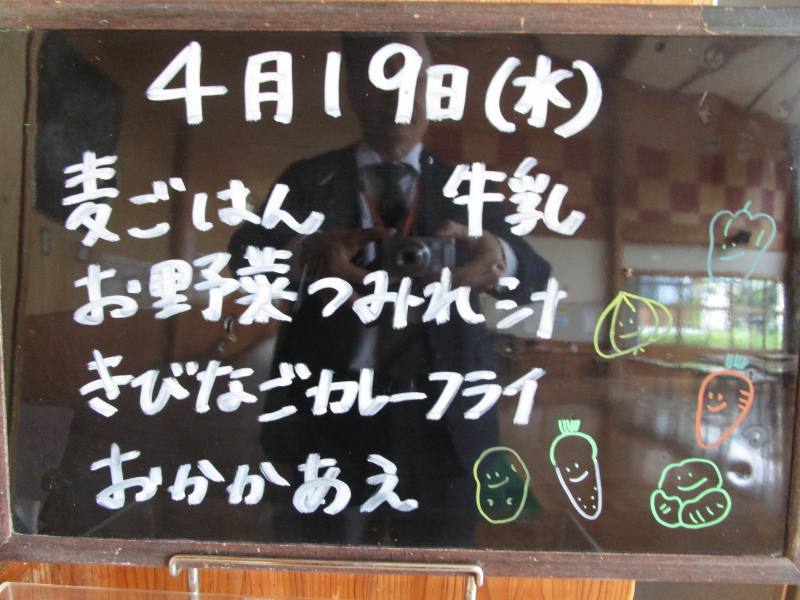 4月19日(水)
麦ごはん 牛乳
お野菜つみれ汁
きびなごカレーフライ
おかかあえ